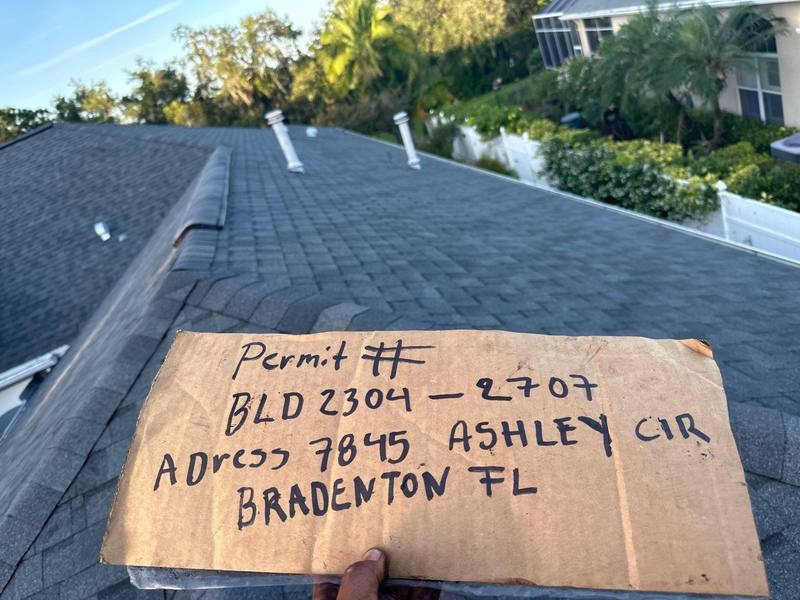 Permit #
BLD 2304 - 2707
ADress 7845 ASHLEY CIR
BRADENTON FL